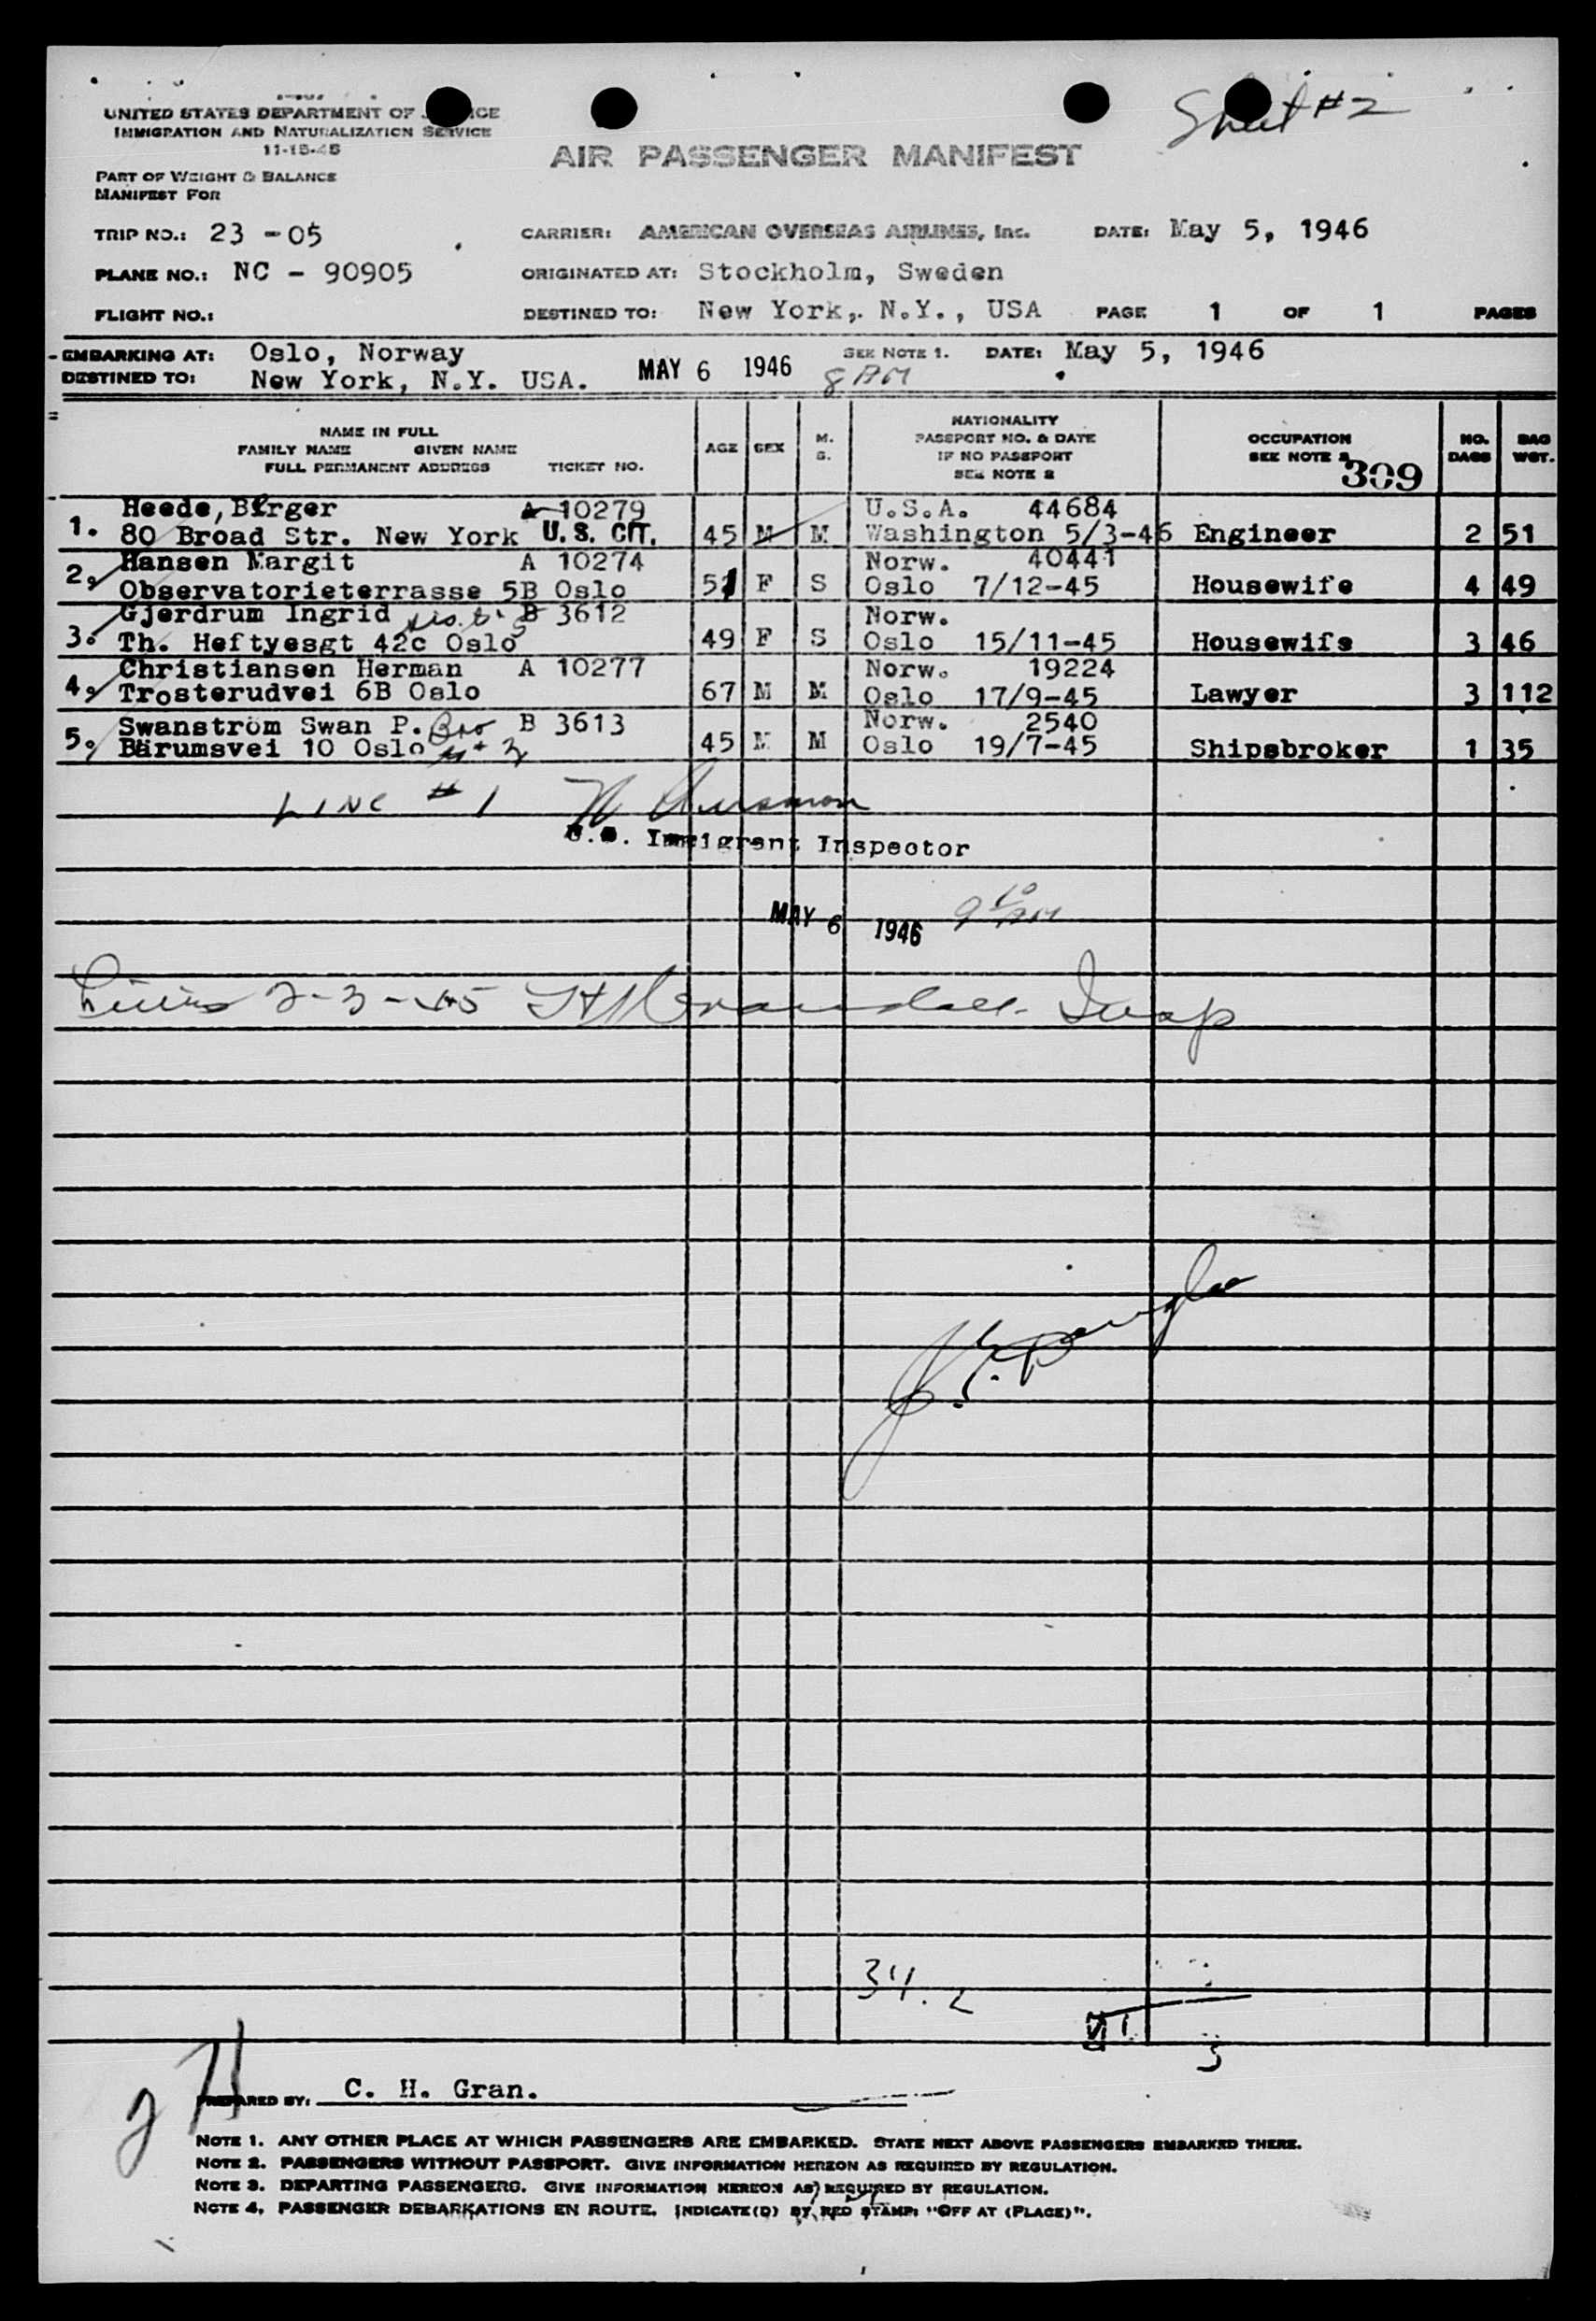 Sheet #2
UNITED STATES DEPARTMENT OF
IMMIGRATION AND NATURALIZATION SERVICE
11-15-45
AIR PASSENGER MANIFEST
PART OF WEIGHT & BALANCE
MANIFEST FOR
TRIP NO.: 23 -05 CARRIER: AMERICAN OVERSEAS AIRLINES, Inc. DATE: May 5, 1946
PLANE NO.: NC - 90905 ORIGINATED AT: Stockholm, Sweden
FLIGHT NO.: DESTINED TO: New York, N.Y., USA PAGE 1 OF 1 PAGES
EMBARKING AT: Oslo, Norway SEE NOTE 1. DATE: May 5, 1946
DESTINED TO: New York, N.Y. USA. MAY 6 1946 8 AM
NAME IN FULL
FAMILY NAME GIVEN NAME
FULL PERMANENT ADDRESS TICKET NO. AGE SEX M. S. NATIONALITY PASSPORT NO. & DATE IF NO PASSPORT SEE NOTE 2 OCCUPATION SEE NOTE 2 NO. BAGS BAG WGT.
309
Heede, Birger A 10279 U.S.A. 44684
1. 80 Broad Str. New York U. S. CIT. 45 M M Washington 5/3-46 Engineer 2 51
Hansen Margit A 10274 Norw. 40441
2. Observatorieterrasse 5B Oslo 51 F S Oslo 7/12-45 Housewife 4 49
Gjerdrum Ingrid B 3612 Norw.
3. Th. Heftyesgt 42c Oslo 49 F S Oslo 15/11-45 Housewife 3 46
Christiansen Herman A 10277 Norw. 19224
4. Trosterudvei 6B Oslo 67 M M Oslo 17/9-45 Lawyer 3 112
Swanström Swan P. Bro B 3613 Norw. 2540
5. Bärumsvei 10 Oslo 45 M M Oslo 19/7-45 Shipsbroker 1 35
LINE # 1
U.S. Immigrant Inspector
MAY 6 1946 9 10 AM
2-3-45 Insp
34.2
PREPARED BY: C. H. Gran.
NOTE 1. ANY OTHER PLACE AT WHICH PASSENGERS ARE EMBARKED. STATE NEXT ABOVE PASSENGERS EMBARKED THERE.
NOTE 2. PASSENGERS WITHOUT PASSPORT. GIVE INFORMATION HEREON AS REQUIRED BY REGULATION.
NOTE 3. DEPARTING PASSENGERS. GIVE INFORMATION HEREON AS REQUIRED BY REGULATION.
NOTE 4. PASSENGER DEBARKATIONS EN ROUTE. INDICATE(D) BY RED STAMP: "OFF AT (PLACE)".